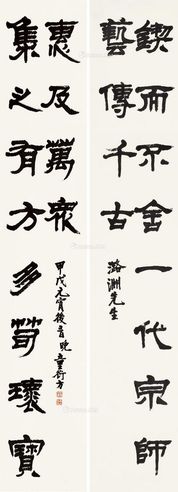 鍥而不舍一代宗師
藝傳千古
潞淵先生
集之有方多荀瓌寶
惠及萬眾
甲戌元宵後晚童衍方